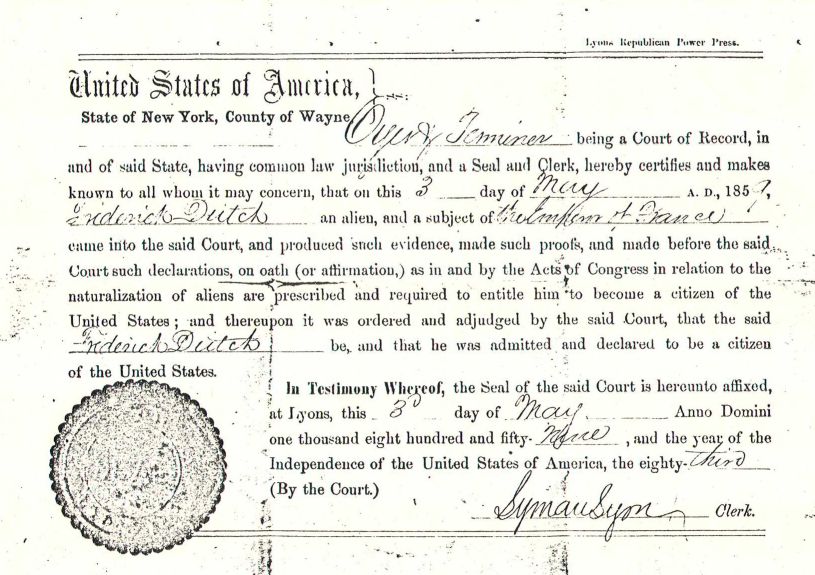 Lyons Republican Power Press.
United States of America,
State of New York, County of Wayne
Oyer & Terminer being a Court of Record, in
and of said State, having common law jurisdiction, and a Seal and Clerk, hereby certifies and makes
known to all whom it may concern, that on this 3 day of May A. D., 1859,
Frederick Deitch an alien, and a subject of the Emperor of France
came into the said Court, and produced such evidence, made such proofs, and made before the said
Court such declarations, on oath (or affirmation,) as in and by the Acts of Congress in relation to the
naturalization of aliens are prescribed and required to entitle him to become a citizen of the
United States; and thereupon it was ordered and adjudged by the said Court, that the said
Frederick Deitch be, and that he was admitted and declared to be a citizen
of the United States.
In Testimony Whereof, the Seal of the said Court is hereunto affixed,
at Lyons, this 3d day of May Anno Domini
one thousand eight hundred and fifty-Nine, and the year of the
Independence of the United States of America, the eighty-third
(By the Court.)
Lyman Lyon Clerk.